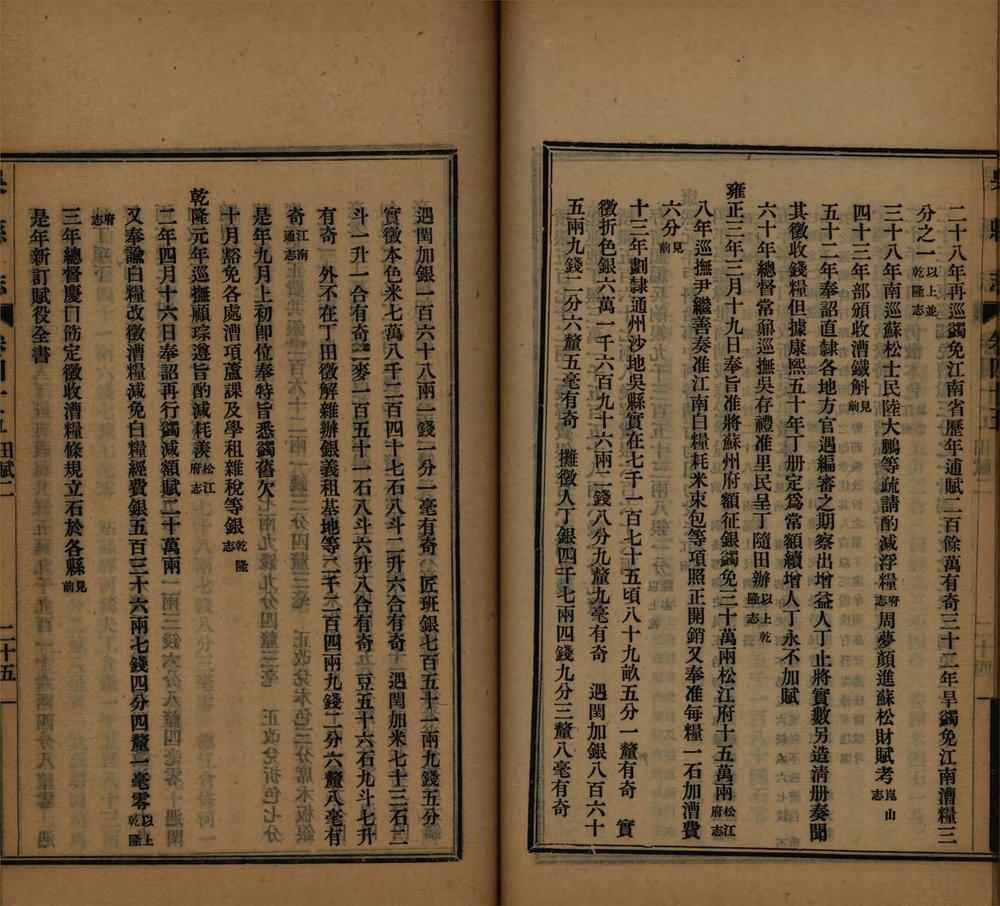 二十八年再巡蠲免江南省歷年逋賦二百餘萬有奇三十二年旱蠲免江南漕糧三
分之一以上並乾隆志
三十八年南巡蘇松士民陸大鵬等疏請酌減浮糧府志周夢顏進蘇松財賦考崑山志
四十三年部頒收漕鐵斛見前
五十二年奉詔直隸各地方官遇編審之期察出增益人丁止將實數另造清册奏聞
其徵收錢糧但據康熙五十年丁册定爲常額續增人丁永不加賦
六十年總督常鼐巡撫吳存禮准里民呈丁隨田辦以上乾隆志
雍正三年三月十九日奉旨准將蘇州府額征銀蠲免三十萬兩松江府十五萬兩松江府志
八年巡撫尹繼善奏准江南白糧耗米束包等項照正開銷又奉准每糧一石加漕費
六分見前
十三年劃隸通州沙地吳縣實在七千一百七十五頃八十九畝五分一釐有奇　實
徵折色銀六萬一千六百九十六兩二錢八分九釐九毫有奇　遇閏加銀八百六十
五兩九錢二分六釐五毫有奇　攤徵人丁銀四千七兩四錢九分三釐八毫有奇
遇閏加銀一百六十八兩一錢一分二毫有奇　匠班銀七百五十一兩九錢五分
實徵本色米七萬八千二百四十七石八斗二升六合有奇　遇閏加米七十三石二
斗一升一合有奇　二麥一百五十一石八斗六升八合有奇　豆五十六石九斗七升
有奇　外不在丁田徵解雜辦銀義租基地等六千二百四兩九錢二分六釐八毫有
奇江南通志
是年九月上初卽位奉特旨悉蠲舊欠
十月豁免各處漕項蘆課及學租雜稅等銀乾隆志
乾隆元年巡撫顧琮遵旨酌減耗羨松江府志
二年四月十六日奉詔再行蠲減額賦二十萬兩
又奉諭白糧改徵漕糧減免白糧經費銀五百三十六兩七錢四分四釐一毫零以上乾隆
府志
三年總督慶口筋定徵收漕糧條規立石於各縣見前
是年新訂賦役全書
田賦二
二十五